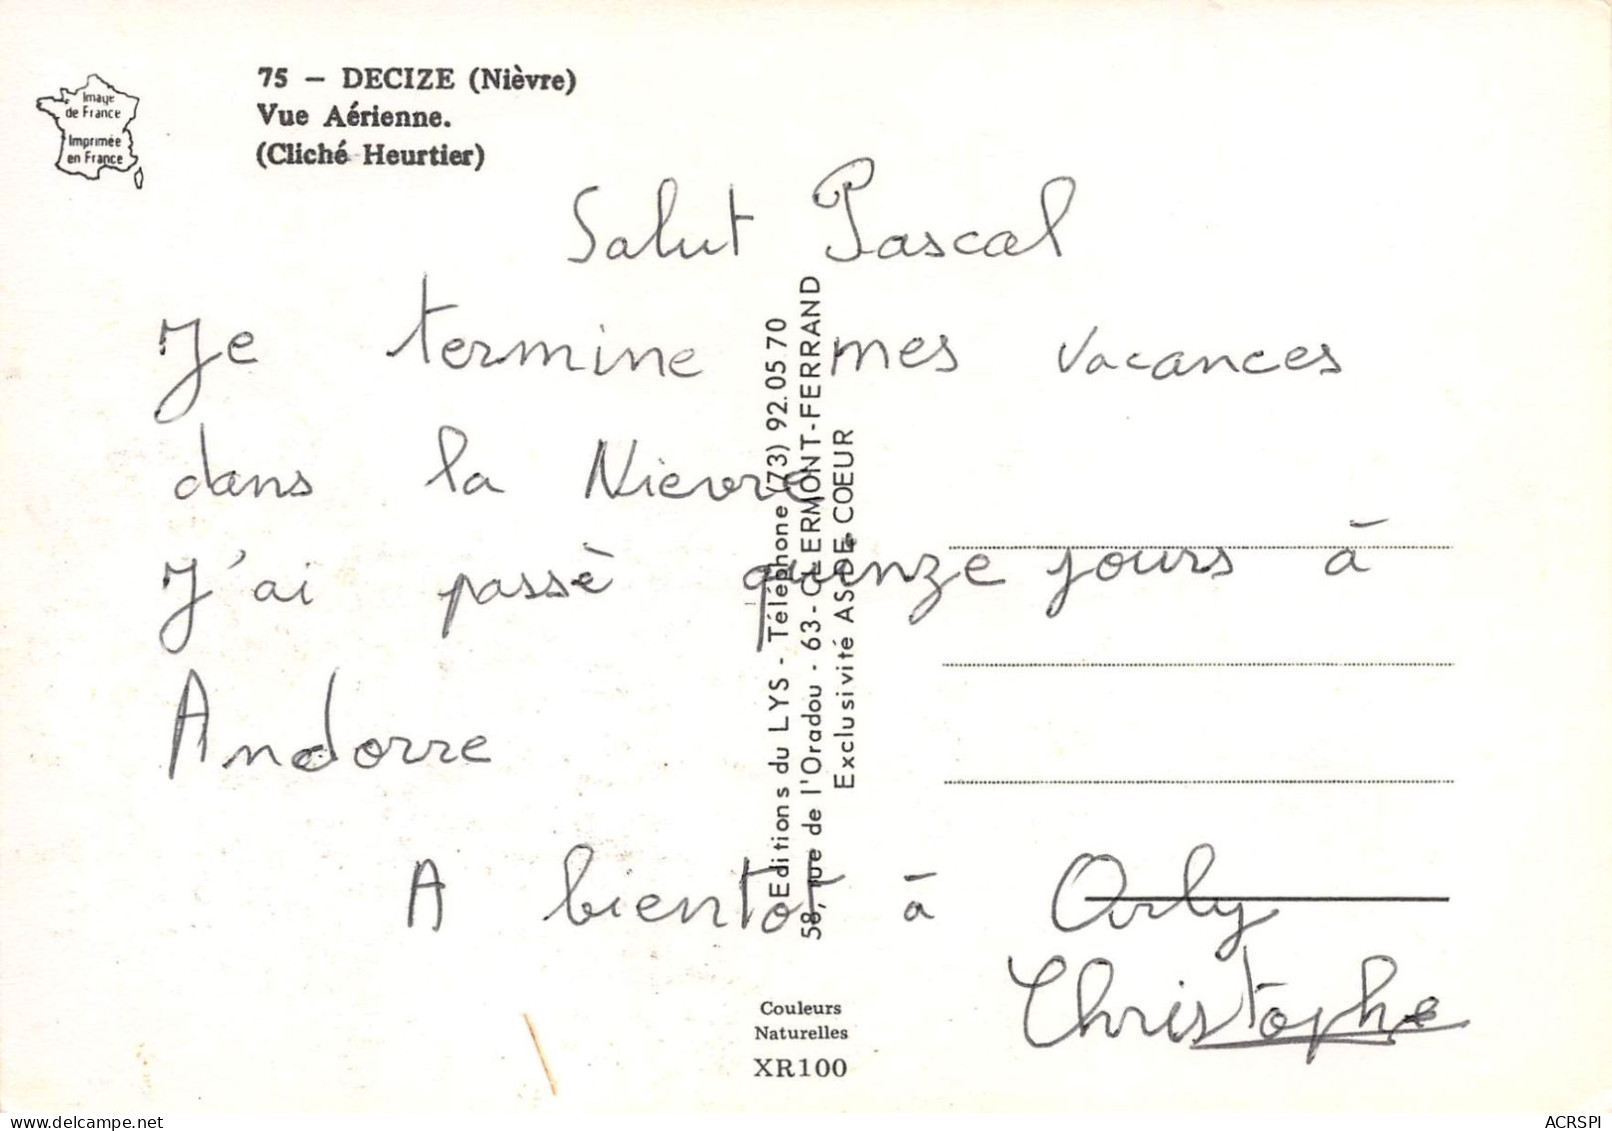 Image
de France
Imprimée
en France
75 – DECIZE (Nièvre)
Vue Aérienne.
(Cliché Heurtier)
Salut Pascal
Je termine mes vacances
dans la Nievre
J'ai passè quinze jours à
Andorre
A bientot à Orly
Christophe
Editions du LYS - Téléphone (73) 92.05.70
58, rue de l'Oradou - 63 - CLERMONT-FERRAND
Exclusivité AS DE COEUR
Couleurs
Naturelles
XR100
ACRSPI